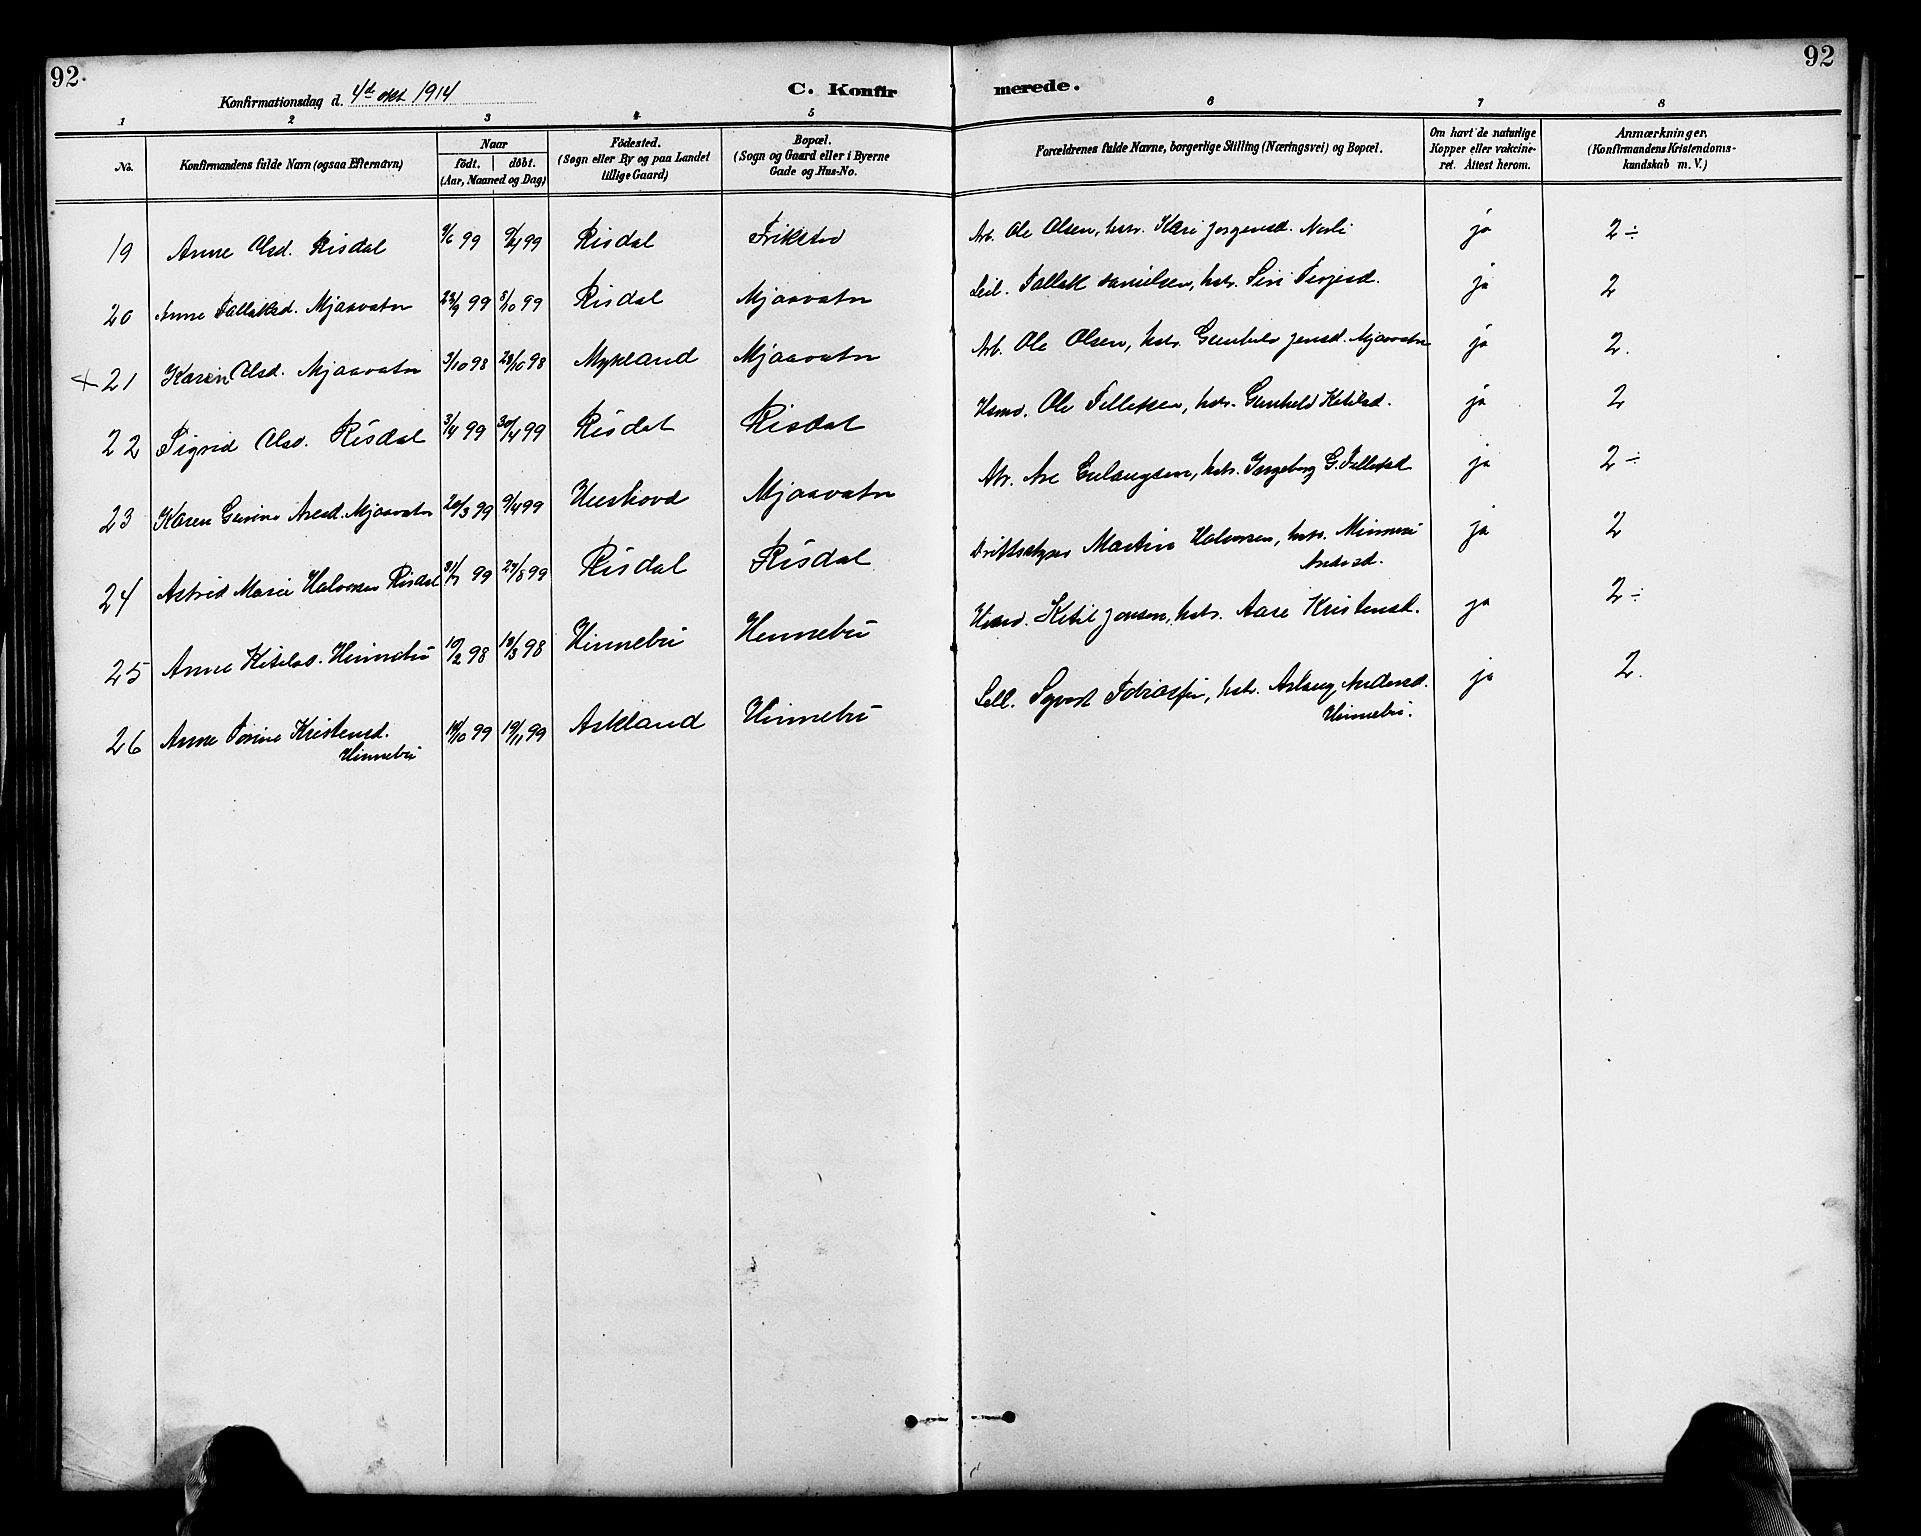 92.
92
Konfirmationsdag d. 4de okt 1914
C. Konfir
merede.
1 2 3 4 5 6 7 8
No.
Konfirmandens fulde Navn (ogsaa Efternavn)
Naar
födt. döbt.
(Aar, Maaned og Dag)
Födested.
(Sogn eller By og paa Landet
tillige Gaard)
Bopæl.
(Sogn og Gaard eller i Byerne
Gade og Hus-No.
Forældrenes fulde Navne, borgerlige Stilling (Næringsvei) og Bopæl.
Om havt de naturlige
Kopper eller vakcine-
ret. Attest herom.
Anmærkninger.
(Konfirmandens Kristendoms-
kundskab m. V.)
19 Anne Olsd. Risdal 9/6 99 9/7 99 Risdal Frikstad Arb. Ole Olsen, hstr. Kari Jørgensd. Nesli ja 2÷
20 Anne Tallaksd. Mjaavatn 23/9 99 8/10 99 Risdal Mjaavatn Leil. Tallak Danielsen, hstr. Siri Terjesd. ja 2
+21 Karen Olsd. Mjaavatn 3/10 98 23/10 98 Mykland Mjaavatn Arb. Ole Olsen, hstr. Gunhild Jensd. Mjaavatn ja 2.
22 Sigrid Olsd. Risdal 3/4 99 30/4 99 Risdal Risdal Husmd. Ole Tellefsen, hstr. Gunhild Ketilsd. ja 2
23 Karen Gurine Aresd. Mjaavatn 20/3 99 9/4 99 Heshovd Mjaavatn Are hstr. Ingeborg G. Tellefsd ja 2÷
24 Astrid Marie Halvorsen Risdal 31/7 99 27/8 99 Risdal Risdal Driftsbstyrer Martin Halvorsen, hstr. Minnesie
Andersd. ja 2
25 Anne Ketilsd. Hinnebu 10/2 98 13/3 98 Hinnebu Hinnebu Husmd. Ketil Jonsen, hstr. Aase Kristensd. ja 2÷
26 Anne Torine Kristensd.
Hinnebu 18/10 99 19/11 99 Askland Hinnebu Sell. Syvert Tobiassen, hstr. Aslaug Andersd.
Hinnebu. ja 2.